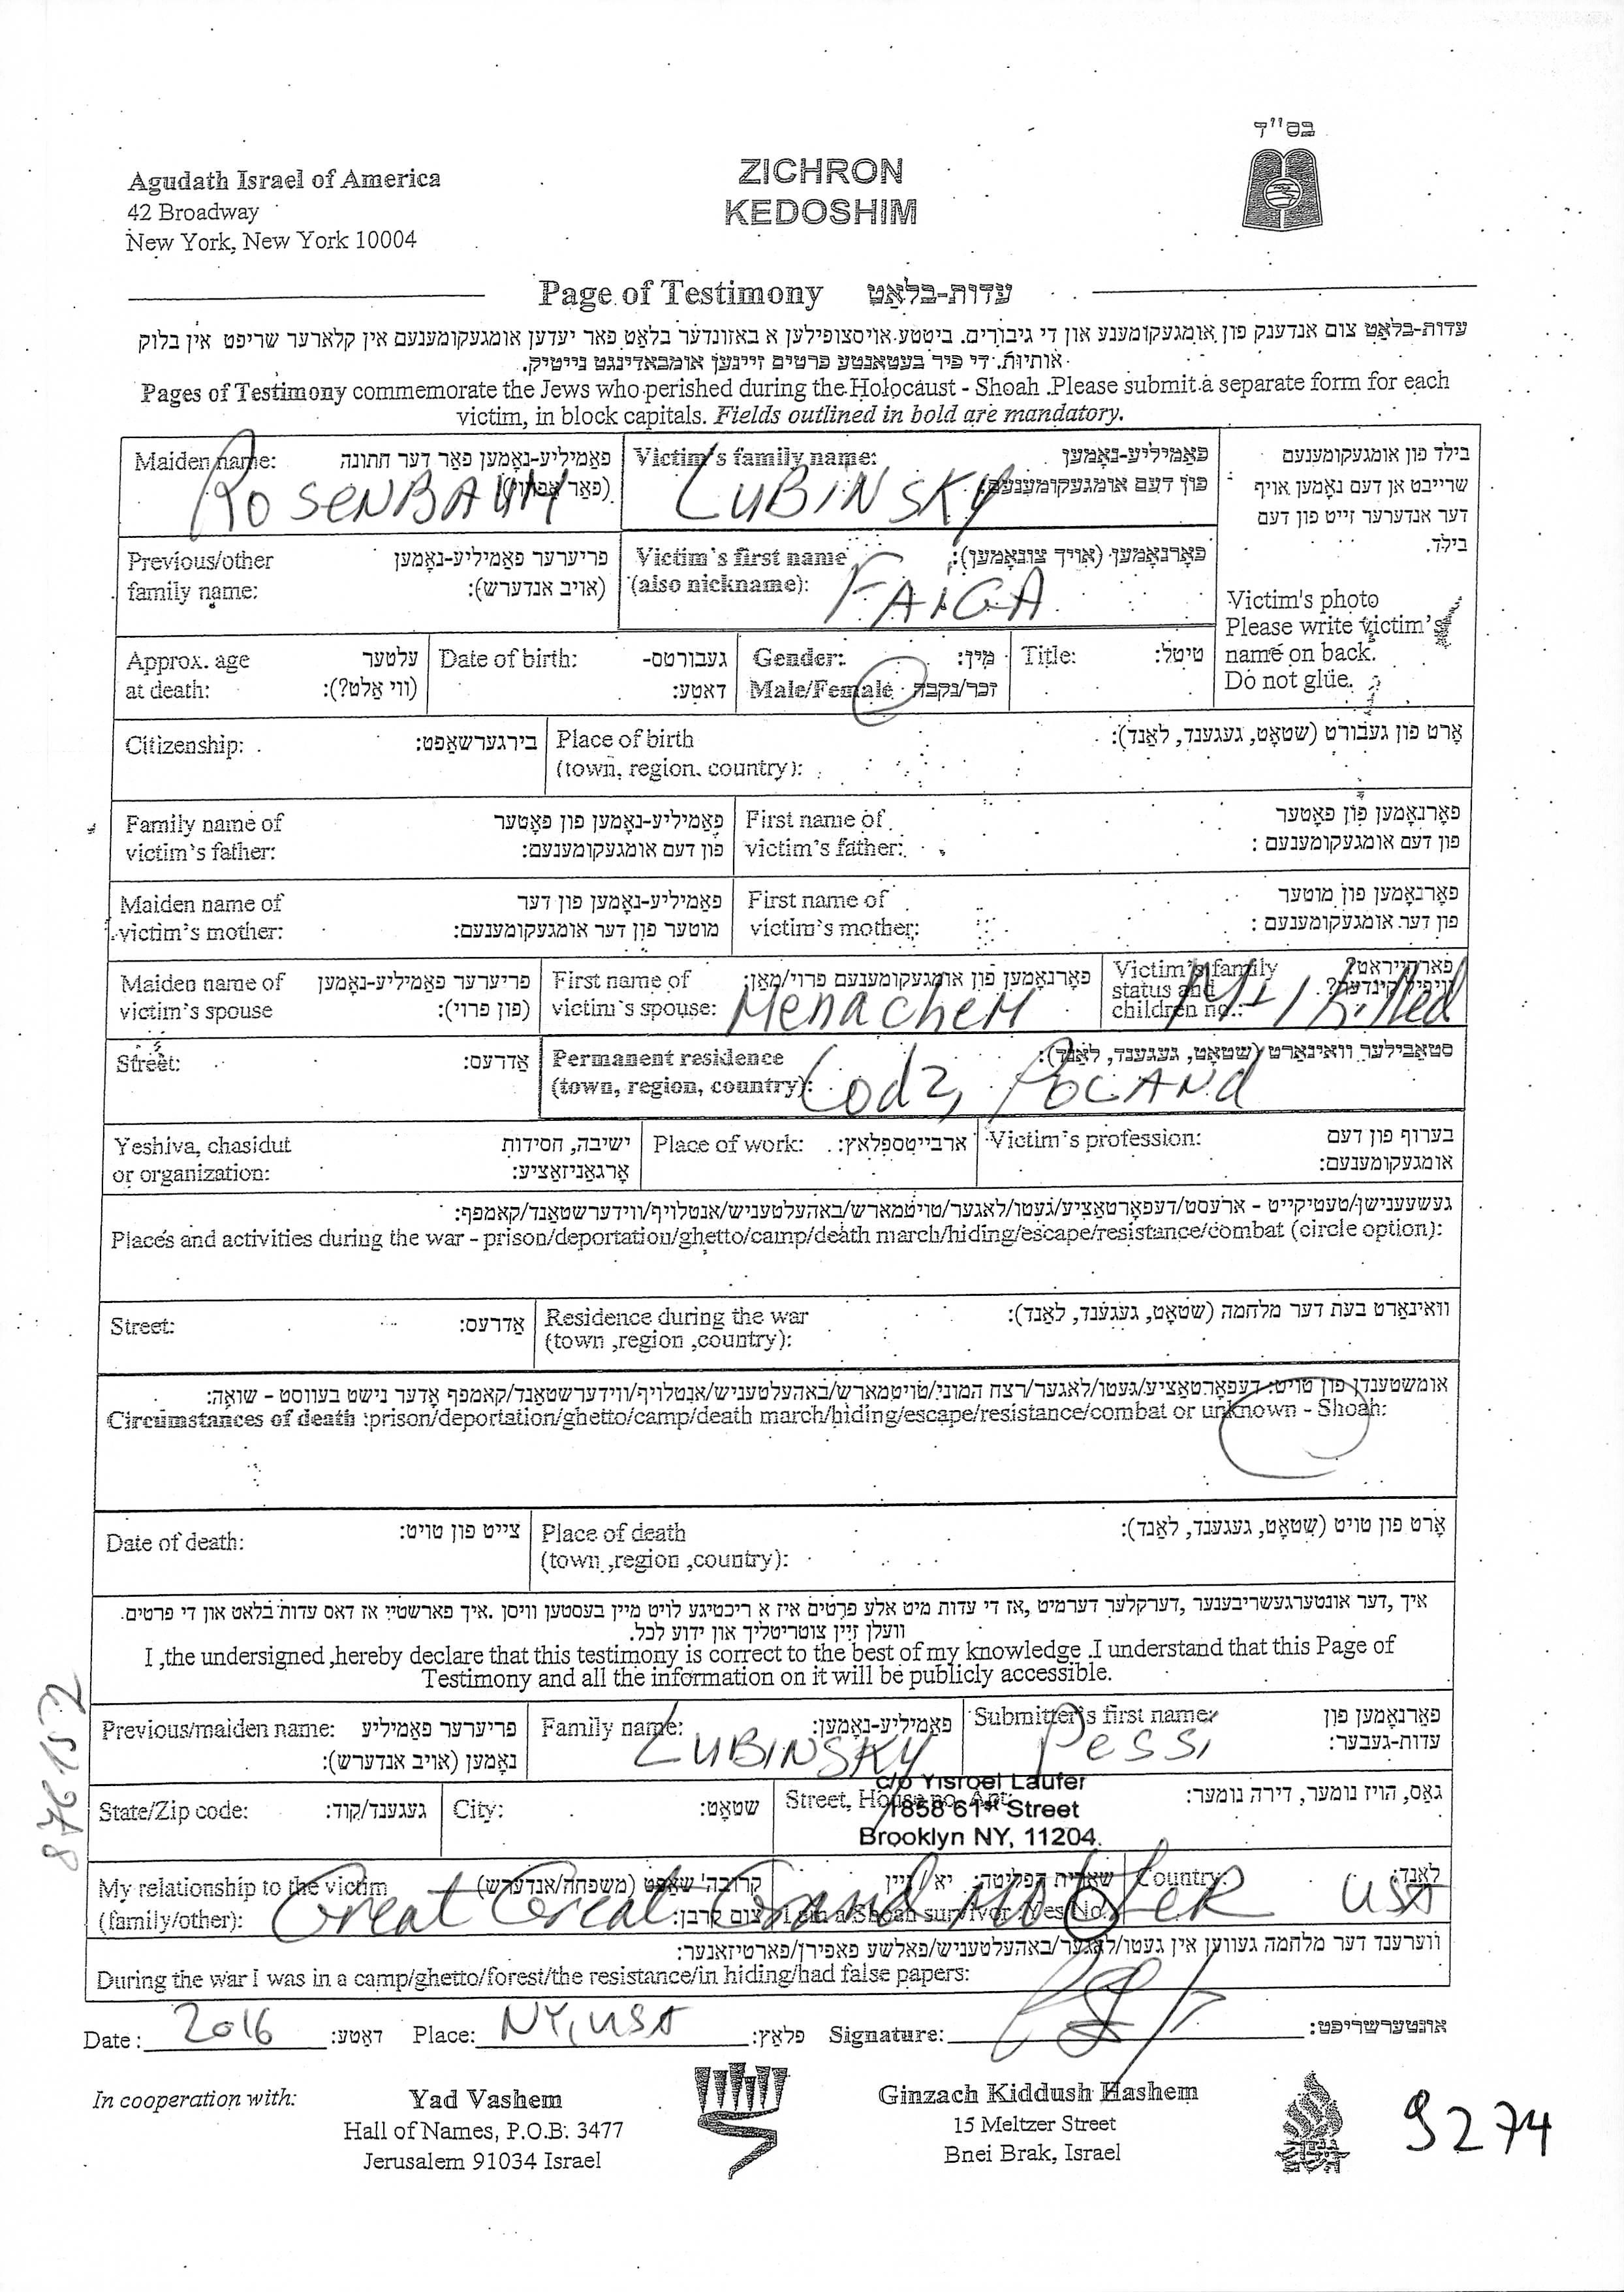 בס"ד
Agudath Israel of America
42 Broadway
New York, New York 10004
ZICHRON
KEDOSHIM
Page of Testimony עדות-בלאַט
עדות-בלאַט צום אנדענק פון אומגעקומענע און די גיבורים. ביטטע אויסצופילען א באזונדער בלאט פאר יעדען אומגעקומענעם אין קלארער שריפט אין בלוק
אותיות. די פיר בעטאנטע פרטים זיינען אומבאדינגט נייטיק.
Pages of Testimony commemorate the Jews who perished during the Holocaust - Shoah .Please submit a separate form for each
victim, in block capitals. Fields outlined in bold are mandatory.
Maiden name: פאַמיליע-נאָמען פאר דער חתונה
ROSENBAUM
Victim's family name: פאַמיליע-נאָמען
פון דעם אומגעקומענעם:
LUBINSKY
בילד פון אומגעקומענעם
שרייבט אן דעם נאָמען אויף
דער אנדערער זייט פון דעם
בילד.
Victim's photo
Please write victim's
name on back.
Do not glue.
Previous/other פריערער פאַמיליע-נאָמען
family name: (אויב אנדערש):
Victim's first name פאָרנאָמען (אויך צונאָמען):
(also nickname):
FAIGA
Approx. age עלטער
at death: (ווי אַלט?):
Date of birth: געבורטס-
דאטע:
Gender: מין:
Male/Female זכר/נקבה
Title: טיטל:
Citizenship: בירגערשאַפט:
Place of birth אָרט פון געבורט (שטאָט, געגענד, לאַנד):
(town, region, country):
Family name of פאַמיליע-נאָמען פון פאָטער
victim's father: פון דעם אומגעקומענעם:
First name of פאָרנאָמען פון פאָטער
victim's father: פון דעם אומגעקומענעם :
Maiden name of פאַמיליע-נאָמען פון דער
victim's mother: מוטער פון דער אומגעקומענעם:
First name of פאָרנאָמען פון מוטער
victim's mother: פון דער אומגעקומענעם :
Maiden name of פריערער פאַמיליע-נאָמען
victim's spouse (פון פרוי):
First name of פאָרנאָמען פון אומגעקומענעם פרוי/מאַן:
victim's spouse: Menachem
Victim's family
status and
children no.:
M 1 killed
Street: אַדרעס:
Permanent residence סטאַבילער וואוינאָרט (שטאָט, געגענד, לאַנד):
(town, region, country):
Lodz, POLAND
Yeshiva, chasidut ישיבה, חסידות
or organization: אָרגאַניזאַציע:
Place of work: ארבייטספלאץ:
Victim's profession: בערוף פון דעם
אומגעקומענעם:
געשעענישן/טעטיקייט - ארעסט/דעפאָרטאַציע/געטו/לאגער/טויטמארש/באהעלטעניש/אנטלויף/ווידערשטאַנד/קאמפף:
Places and activities during the war - prison/deportation/ghetto/camp/death march/hiding/escape/resistance/combat (circle option):
Street: אַדרעס:
Residence during the war וואוינאָרט בעת דער מלחמה (שטאָט, געגענד, לאַנד):
(town ,region ,country):
אומשטענדן פון טויט: דעפאָרטאַציע/געטו/לאגער/רצח המוני/טויטמארש/באהעלטעניש/אנטלויף/ווידערשטאַנד/קאמפף אָדער נישט בעוווסט - שואה:
Circumstances of death :prison/deportation/ghetto/camp/death march/hiding/escape/resistance/combat or unknown - Shoah:
Date of death: צייט פון טויט:
Place of death אָרט פון טויט (שטאָט, געגענד, לאַנד):
(town ,region ,country):
איך ,דער אונטערגעשריבענער ,דערקלער דערמיט ,אז די עדות מיט אלע פרטים איז א ריכטיגע לויט מיין בעסטען וויסן .איך פארשטיי אז דאס עדות בלאט און די פרטים
וועלן זיין צוטריטליך און ידוע לכל.
I ,the undersigned ,hereby declare that this testimony is correct to the best of my knowledge .I understand that this Page of
Testimony and all the information on it will be publicly accessible.
Previous/maiden name: פריערער פאַמיליע
נאָמען (אויב אנדערש):
Family name: פאַמיליע-נאָמען:
LUBINSKY
Submitter's first name: פאָרנאָמען פון
עדות-געבער:
Pessi
State/Zip code: געגענד/קוד:
City: שטאָט:
Street, House no. Apt: גאס, הויז נומער, דירה נומער:
c/o Yisroel Laufer
1858 61st Street
Brooklyn NY, 11204.
My relationship to the victim (משפחה/אנדערש)
(family/other): צום קרבן:
Great Great Grand Mother
שארית הפליטה: יא / ניין
I am a Shoah survivor Yes/No
Country: לאַנד:
USA
ווערענד דער מלחמה געווען אין געטו/לאגער/באהעלטעניש/פאלשע פאפירן/פארטיזאנער:
During the war I was in a camp/ghetto/forest/the resistance/in hiding/had false papers:
Date : 2016 דאטע: Place: NY, USA פלאַץ: Signature: אונטערשריפט:
In cooperation with:
Yad Vashem
Hall of Names, P.O.B. 3477
Jerusalem 91034 Israel
Ginzach Kiddush Hashem
15 Meltzer Street
Bnei Brak, Israel
9274
8761572